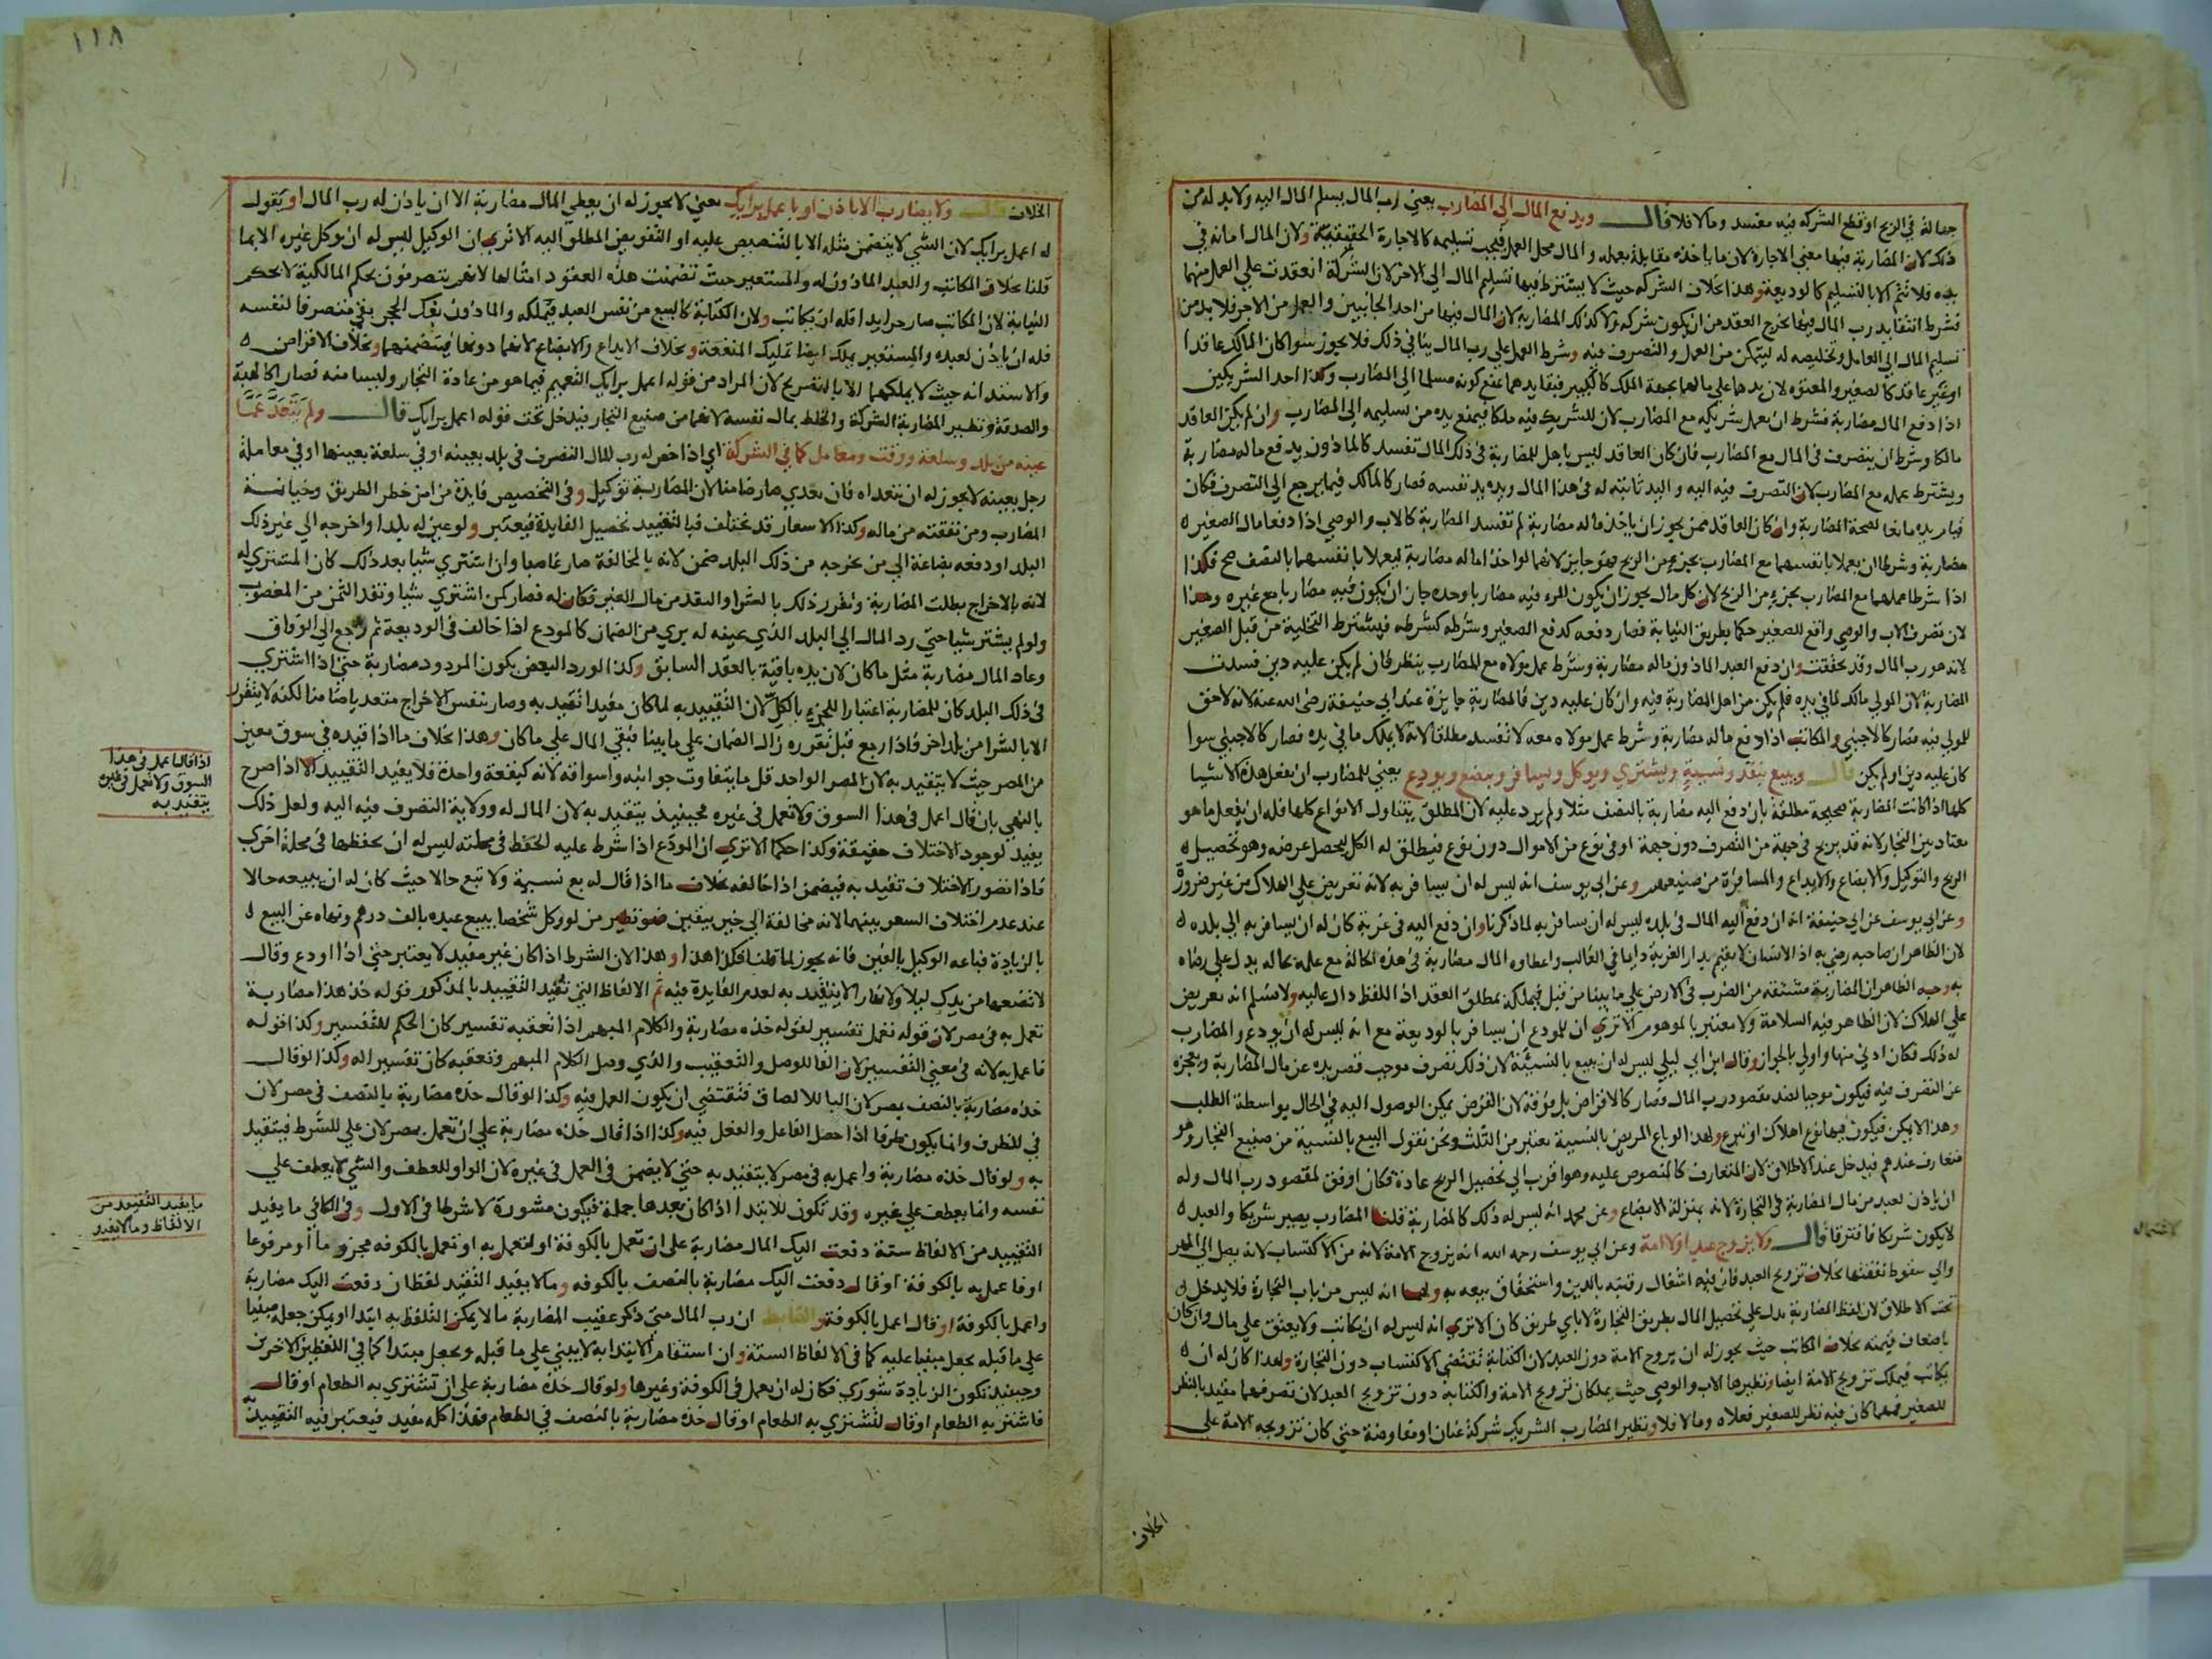 جهالة في الربح او قطع الشركة فيه مفسد ومالا فلا قال ويدفع المال الى المضارب يعني رب المال يسلم المال اليه ولا بد له من
ذلك لان المضاربة فيها معني الاجارة لان ما ياخذه مقابلة بعمله والمال محل العمل فيجب تسليمه كالاجارة الحقيقية ولان المال امانة في
يده فلا تتم الا بالتسليم كالوديعة وهذا بخلاف الشركة حيث لا يشترط فيها تسليم المال الى الاخر لان الشركة انعقدت علي العمل منهما
فشرط انتفا يد رب المال فيها يخرج العقد من ان يكون شركة ولا كذلك المضاربة لان المال فيها من احد الجانبين والعمل من الاخر فلا بد من
تسليم المال الي العامل وتخليصه له ليتمكن من العمل والتصرف فيه وشرط العمل علي رب المال ينافي ذلك فلا يجوز سوا كان المالك عاقدا
او غير عاقد كالصغير والمعتوه لان يدهما علي مالهما بجهة الملك كالكبير فبقا يدهما يمنع كونه مسلما الي المضارب وكذا احد الشريكين
اذا دفع المال مضاربة فشرط ان يعمل شريكه مع المضارب لان للشريك فيه ملكا فيمنع يده من تسليمه الي المضارب وان لم يكن العاقد
مالكا وشرط ان يتصرف في المال مع المضارب فان كان العاقد ليس باهل للمضاربة في ذلك المال تفسد كالماذون يدفع ماله مضاربة
ويشترط عمله مع المضارب لان التصرف فيه اليه واليد ثابتة له في هذا المال ويده يد نفسه فصار كالمالك فيما يرجع الي التصرف فكان
قيام يده مانعا لصحة المضاربة وان كان العاقد ممن يجوز ان ياخذ ماله مضاربة لم تفسد المضاربة كالاب والوصي اذا دفعا مال الصغير
مضاربة وشرطا ان يعملا بانفسهما مع المضارب بجزء من الربح فهو جايز لانهما لو اخذا ماله مضاربة ليعملا بانفسهما بالنصف صح فكذا
اذا شرطا عملهما مع المضارب بجزء من الربح لان كل مال يجوز ان يكون المرء فيه مضاربا وحده جاز ان يكون فيه مضاربا مع غيره وهذا
لان تصرف الاب والوصي واقع للصغير حكما بطريق النيابة فصار دفعه كدفع الصغير وشرطه كشرطه فيشترط التخلية من قبل الصغير
لانه هو رب المال وقد تحققت وان دفع العبد الماذون ماله مضاربة وشرط عمل مولاه مع المضارب ينظر فان لم يكن عليه دين فسدت
المضاربة لان المولي مالك لما في يده فلم يكن من اهل المضاربة فيه وان كان عليه دين فالمضاربة جايزة عند ابي حنيفة رضى الله عنه لانه لاحق
للمولي فيه فصار كالاجنبي والمكاتب اذا دفع ماله مضاربة وشرط عمل مولاه معه لا تفسد مطلقا لانه لا يملك ما في يده فصار كالاجنبي سوا
كان عليه دين او لم يكن قال ويبيع بنقد ونسيئة ويشتري ويوكل ويسافر ويبضع ويودع يعني للمضارب ان يفعل هذه الاشيا
كلها اذا كانت المضاربة صحيحة مطلقة بان دفع اليه مضاربة بالنصف مثلا ولم يرد عليه لان المطلق يتناول الانواع كلها فله ان يفعل ما هو
معتاد بين التجار لانه قد يربح في جهة من التصرف دون جهة او في نوع من الاموال دون نوع فيطلق له الكل ليحصل غرضه وهو تحصيل
الربح والتوكيل والابضاع والايداع والمسافرة من صنيعهم وعن ابي يوسف انه ليس له ان يسافر به لانه تعريض علي الهلاك من غير ضرورة
وعن ابي يوسف عن ابي حنيفة انه ان دفع اليه المال في بلده ليس له ان يسافر به لما ذكرنا وان دفع اليه في غربة كان له ان يسافر به الي بلده
لان الظاهر ان صاحبه رضي به اذ الانسان لا يقيم بدار الغربة دايما في الغالب واعطاوه المال مضاربة في هذه الحالة مع علمه بحاله يدل علي رضاه
به وجه الظاهر ان المضاربة مشتقة من الضرب في الارض علي ما بينا من قبل فيملكه بمطلق العقد اذ اللفظ دال عليه ولا نسلم انه تعريض
علي الهلاك لان الظاهر فيه السلامة ولا معتبر بالموهوم الا تري ان للمودع ان يسافر بالوديعة مع انه ليس له ان يودع والمضارب
له ذلك فكان ادني منها واولي بالجواز وقال ابن ابي ليلي ليس له ان يبيع بالنسيئة لان ذلك تصرف موجب قصر يده عن مال المضاربة وبعجزه
عن التصرف فيه فيكون موجبا لضد مقصود رب المال فصار كالاقراض بل فوقه لان القرض يمكن الوصول اليه في الحال بواسطة الطلب
وهذا لا يمكن فيكون فيها نوع اهلاك او تبرع ولهذا لو باع المريض بالنسيئة يعتبر من الثلث ونحن نقول البيع بالنسيئة من صنيع التجار وهو
متعارف عندهم فيدخل عند الاطلاق لان المتعارف كالمنصوص عليه وهو اقرب الي تحصيل الربح عادة فكان اوفق لمقصود رب المال وله
ان ياذن لعبد من مال المضاربة في التجارة لانه بمنزلة الابضاع وعن محمد انه ليس له ذلك كالمضاربة قلنا المضارب يصير شريكا والعبد
لا يكون شريكا فافترقا قال ولا يزوج عبدا ولا امة وعن ابي يوسف رحمه الله انه يزوج الامة لانه من الاكتساب لانه يصل الي المهر
والي سقوط نفقتها بخلاف تزويج العبد فان فيه اشغال رقبته بالدين واستحقاق بيعه به ولهما انه ليس من باب التجارة فلا يدخل
تحت الاطلاق لان لفظ المضاربة يدل علي تحصيل المال بطريق التجارة لا باي طريق كان الا تري انه ليس له ان يكاتب ولا يعتق علي مال وان كان
باضعاف قيمته بخلاف المكاتب حيث يجوز له ان يزوج الامة دون العبد لان الكتابة تقتضي الاكتساب دون التجارة ولهذا كان له ان
يكاتب فيملك تزويج الامة ايضا ونظيرها الاب والوصي حيث يملكان تزويج الامة والكتابة دون تزويج العبد لان تصرفهما مقيد بالنظر
للصغير فمهما كان فيه نظر للصغير فعلاه ومالا فلا ونظير المضارب الشريك شركة عنان او مفاوضة حتي كان تزويجه الامة علي
الخلاف
١١٨
الخلاف قال ولا يضارب الا باذن او باعمل برايك يعني لا يجوز له ان يعطي المال مضاربة الا ان ياذن له رب المال او يقول
له اعمل برايك لان الشي لا يتضمن مثله الا بالتنصيص عليه او التفويض المطلق اليه الا تري ان الوكيل ليس له ان يوكل غيره الا بما
قلنا بخلاف المكاتب والعبد الماذون له والمستعير حيث تضمنت هذه العقود امثالها لانهم يتصرفون بحكم المالكية لا بحكم
النيابة لان المكاتب صار حرا يدا فله ان يكاتب ولان الكتابة كالبيع من نفس العبد فيملكه والماذون بفك الحجر بقي متصرفا لنفسه
فله ان ياذن لعبده والمستعير يملك ايضا تمليك المنفعة وبخلاف الايداع والابضاع لانهما دونها فيتضمنهما وبخلاف الاقراض
والاستدانة حيث لا يملكهما الا بالتصريح لان المراد من قوله اعمل برايك التعميم فيما هو من عادة التجار وليسا منه فصارا كالهبة
والصدقة ونظير المضاربة الشركة والخلط بمال نفسه لانهما من صنيع التجار فيدخل تحت قوله اعمل برايك قال ولم يتعد عما
عينه من بلد وسلعة ووقت ومعامل كما في الشركة اي اذا خص له رب المال التصرف في بلد بعينه او في سلعة بعينها او في معاملة
رجل بعينه لا يجوز له ان يتعداه فان تعدي صار ضامنا لان المضاربة توكيل وفي التخصيص فايدة من امن خطر الطريق وخيانة
المضارب ومن نفقته من ماله وكذا الاسعار قد تختلف فبالتقييد تحصيل الفايدة فيعتبر ولو عين له بلدا واخرجه الي غير ذلك
البلد او دفعه بضاعة الي من يخرجه من ذلك البلد ضمن لانه بالمخالفة صار غاصبا وان اشتري شيا بعد ذلك كان المشتري له
لانه بالاخراج بطلت المضاربة وتقرر ذلك بالشرا والنقد من مال الغير فكان له فصار كمن اشتري شيا ونقد الثمن من المغصوب
ولو لم يشتر شيا حتي رد المال الي البلد الذي عينه له بري من الضمان كالمودع اذا خالف في الوديعة ثم رجع الي الوفاق
وعاد المال مضاربة مثل ما كان لان يده باقية بالعقد السابق وكذا لو رد البعض يكون المردود مضاربة حتي اذا اشتري
في ذلك البلد كان للمضاربة اعتبارا للجزء بالكل لان التقييد به لما كان مفيدا تقيد به وصار بنفس الاخراج متعديا ضامنا لكنه لا يتقرر
الا بالشرا من بلد اخر فاذا رجع قبل تقرره زال الضمان علي ما بينا فبقي المال علي ما كان وهذا بخلاف ما اذا قيده في سوق معين
من المصر حيث لا يتقيد به لان المصر الواحد قل ما يتفاوت جوانبه واسواقه لانه كبقعة واحدة فلا يفيد التقييد الا اذا صرح
بالنهي بان قال اعمل في هذا السوق ولا تعمل في غيره فحينيذ يتقيد به لان المال له وولاية التصرف فيه اليه ولعل ذلك
يفيد لوجود الاختلاف حقيقة وكذا حكما الا تري ان المودع اذا شرط عليه الحفظ في محلته ليس له ان يحفظها في محلة اخري
فاذا تصور الاختلاف تقيد به فيضمن اذا خالفه بخلاف ما اذا قال له بع نسيئة ولا تبع حالا حيث كان له ان يبيعه حالا
عند عدم اختلاف السعر بينهما لانه مخالفة الي خير بيقين فهو نظير من لو وكل شخصا ببيع عبده بالف درهم ونهاه عن البيع
بالزيادة فباعه الوكيل بالفين فانه يجوز لما قلنا فكذا هذا وهذا لان الشرط اذا كان غير مفيد لا يعتبر حتي اذا اودع وقال
لا تضعها من يدك ليلا ولا نهارا لا يتقيد به لعدم الفايدة فيه ثم الالفاظ التي تفيد التقييد بالمذكور قوله خذ هذا مضاربة
تعمل به في مصر لان قوله تعمل تفسير لقوله خذه مضاربة والكلام المبهم اذا تعقبه تفسير كان الحكم للتفسير وكذا قوله
فاعمل به لانه في معني التفسير لان الفا للوصل والتعقيب والذي وصل الكلام المبهم وتعقبه كان تفسيرا له وكذا لو قال
خذه مضاربة بالنصف بمصر لان البا للالصاق فتقتضي ان يكون العمل فيه وكذا لو قال خذه مضاربة بالنصف في مصر لان
في للظرف وانما يكون ظرفا اذا حصل الفاعل والفعل فيه وكذا اذا قال خذه مضاربة علي ان تعمل بمصر لان علي للشرط فيتقيد
به ولو قال خذه مضاربة واعمل به في مصر لا يتقيد به حتي لا يضمن في العمل في غيره لان الواو للعطف والشي لا يعطف علي
نفسه وانما يعطف علي غيره وقد تكون للابتدا اذا كان بعدها جملة فيكون مشورة لا شرطا في الاول وفي الكافي ما يفيد
التقييد من الالفاظ ستة دفعت اليك المال مضاربة علي ان تعمل بالكوفة او لتعمل به او تعمل بالكوفه مجزوما او مرفوعا
او فاعمل به بالكوفة او قال دفعت اليك مضاربة بالنصف بالكوفه ومالا يفيد التقيد لفظان دفعت اليك مضاربة
واعمل بالكوفة او قال اعمل بالكوفة والضابط ان رب المال متي ذكر عقيب المضاربة مالا يمكن التلفظ به ابتدا ويمكن جعله مبنيا
علي ما قبله يجعل مبنيا عليه كما في الالفاظ الستة وان استقام الابتدا به لا يبني علي ما قبله ويجعل مبتدا كما في اللفظين الاخرين
وحينيذ تكون الزيادة شوري فكان له ان يعمل في الكوفة وغيرها ولو قال خذه مضاربة علي ان تشتري به الطعام او قال
فاشتر به الطعام او قال لتشتري به الطعام او قال خذه مضاربة بالنصف في الطعام فهذا كله مفيد فيعتبر فيه التقييد
اذا قال اعمل في هذا
السوق ولا تعمل في غيره
يتقيد به
ما يفيد التقييد من
الالفاظ ومالا يفيد